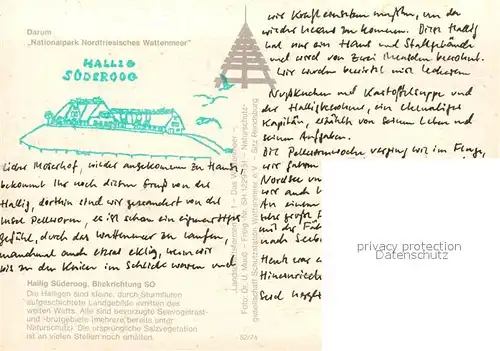 Darum
„Nationalpark Nordfriesisches Wattenmeer"
HALLIG
SÜDEROOG
Lieber Moserhof, wieder angekommen zu Hause,
bekommt Ihr noch diesen Gruß von der
Hallig, dorthin sind wir gewandert von der
Insel Pellworm, es ist schon ein eigenartiges
Gefühl, durch das Wattenmeer zu laufen,
manchmal auch etwas eklig, wenn wir
bis zu den Knien im Schlick waren und
Hallig Süderoog, Blickrichtung SO
Die Halligen sind kleine, durch Sturmfluten
aufgeschichtete Landgebilde inmitten des
weiten Watts. Alle sind bevorzugte Seevogelrast-
und -brutgebiete (mehrere bereits unter
Naturschutz). Die ursprüngliche Salzvegetation
ist an vielen Stellen noch erhalten.
52/74
Landsch. Süderoog 1 – Das Wattenmeer –
Foto: Dr. U. Muuß – Freig.-Nr. SH 1229-151 – Naturschutz-
gesellschaft Schutzstation Wattenmeer e.V. – Sitz Rendsburg
wir Kraft einsetzen mußten, um da
wieder heraus zu kommen. Diese Hallig
hat nur ein Haus und Stallgebäude
und wird von zwei Menschen bewohnt.
Wir wurden bewirtet mit leckerem
Nußkuchen und Kartoffelsuppe und
der Halligbewohner, ein ehemaliger
Kapitän, erzählte von seinem Leben und
seinen Aufgaben.
Die Pellwormwoche verging wie im Fluge,
wir haben
Nordsee
wir auch
An einem
große
und die
nach
Heute war
Hinweisschild
Seid
privacy protection